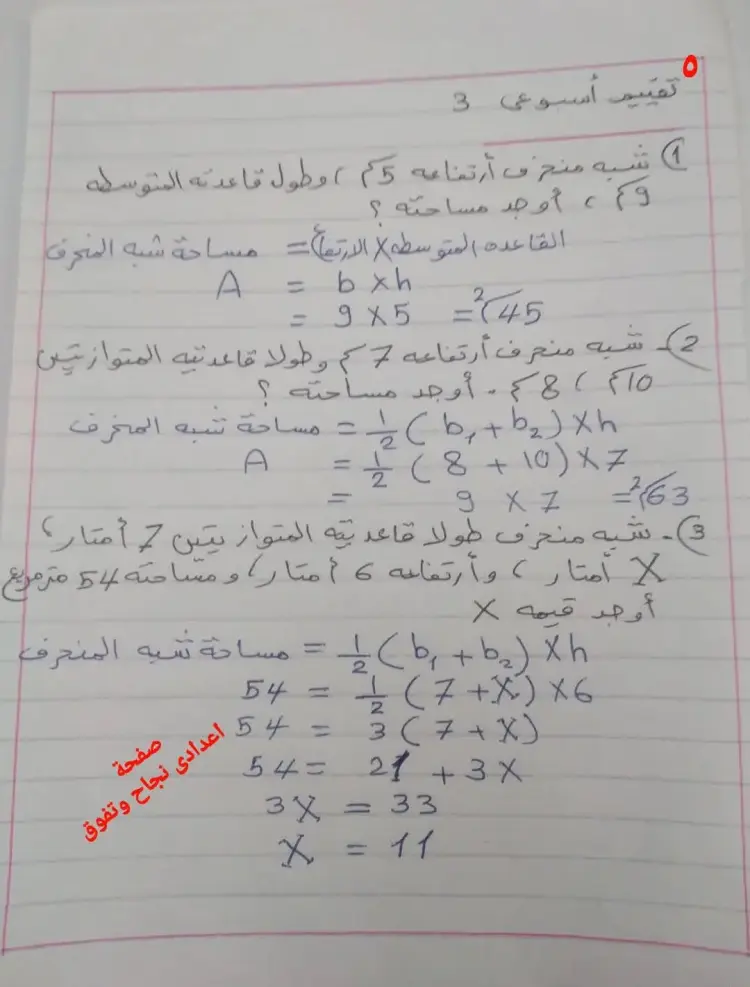 ٥
تقييم أسبوعى 3
1) شبه منحرف أرتفاعه 5 سم ، وطول قاعدته المتوسطه
9 سم ، أوجد مساحته ؟
مساحة شبه المنحرف = القاعده المتوسطه X الارتفاع
A = b X h
= 9 X 5 = 45 سم²
2)- شبه منحرف أرتفاعه 7 سم وطولا قاعدتيه المتوازيتين
10 سم ، 8 سم . أوجد مساحته ؟
مساحة شبه المنحرف = 1/2 (b₁ + b₂) X h
A = 1/2 (8 + 10) X 7
= 9 X 7 = 63 سم²
3)- شبه منحرف طولا قاعدتيه المتوازيتين 7 أمتار ،
X أمتار ، وأرتفاعه 6 أمتار ، ومساحته 54 متر مربع
أوجد قيمه X
مساحة شبه المنحرف = 1/2 (b₁ + b₂) X h
54 = 1/2 (7 + X) X 6
54 = 3 (7 + X)
54 = 21 + 3X
3X = 33
X = 11
صفحة
اعدادى نجاح وتفوق